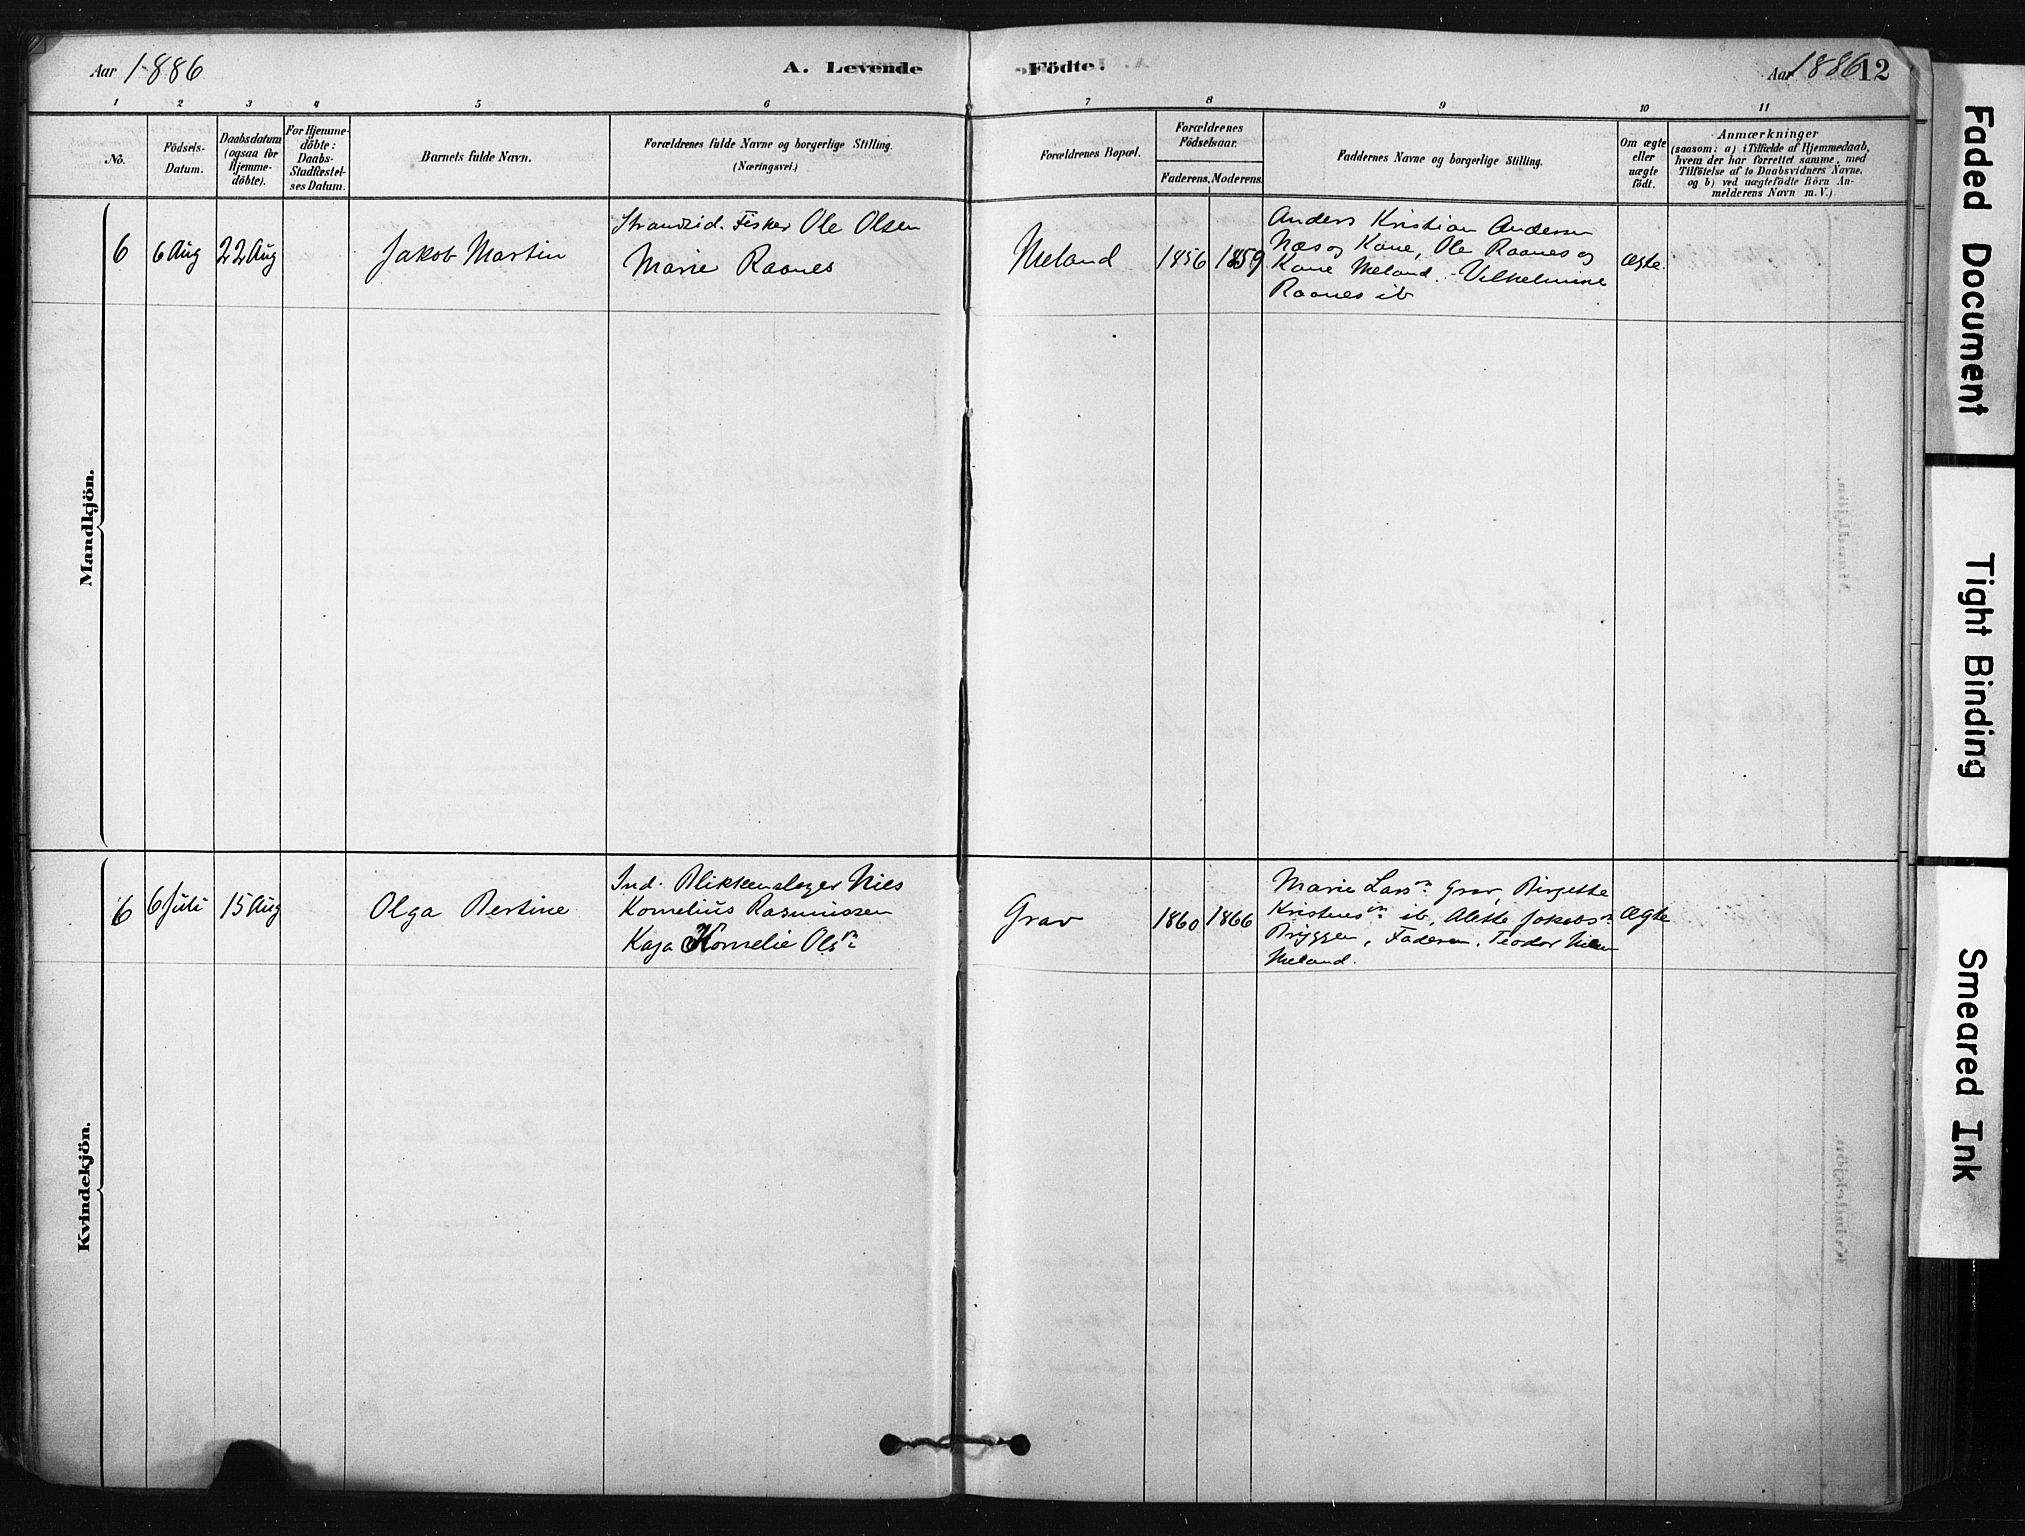 Aar 1886
A. Levende Födte.
Aar 1886 12
1 2 3 4 5 6 7 8 9 10 11
No.
Födsels-
Datum.
Daabsdatum
(ogsaa for
Hjemme-
döbte).
For Hjemme-
döbte:
Daabs-
Stadfæstel-
ses Datum.
Barnets fulde Navn.
Forældrenes fulde Navne og borgerlige Stilling.
(Næringsvei.)
Forældrenes Bopæl.
Forældrenes
Födselsaar.
Faderens. Moderens.
Faddernes Navne og borgerlige Stilling.
Om ægte
eller
uægte
födt.
Anmærkninger
(saasom: a) i Tilfælde af Hjemmedaab,
hvem der har forrettet samme, med
Tilföielse af to Daabsvidners Navne.
og b) ved uægtefödte Börn An-
melderens Navn m. V.)
Mandkjön.
6
6 Aug
22 Aug
Jakob Martin
Strandsid. Fisker Ole Olsen
Marie Raanes
Meland
1856
1859
Anders Kristian Andersen
Næs og Kone, Ole Raanes og
Kone Meland. Vilhelmine
Raanes ib
Ægte
Kvindekjön.
6
6 Juli
15 Aug
Olga Bertine
Ind. Blikkenslager Nils
Kornelius Rasmussen
Kaja Kornelie Olsn
Grav
1860
1866
Marie Larsn Grav, Birgitte
Kristensn ib, Alette Jakobsn
Bryggen, Faderen, Teodor
Meland.
Ægte
Faded Document
Tight Binding
Smeared Ink